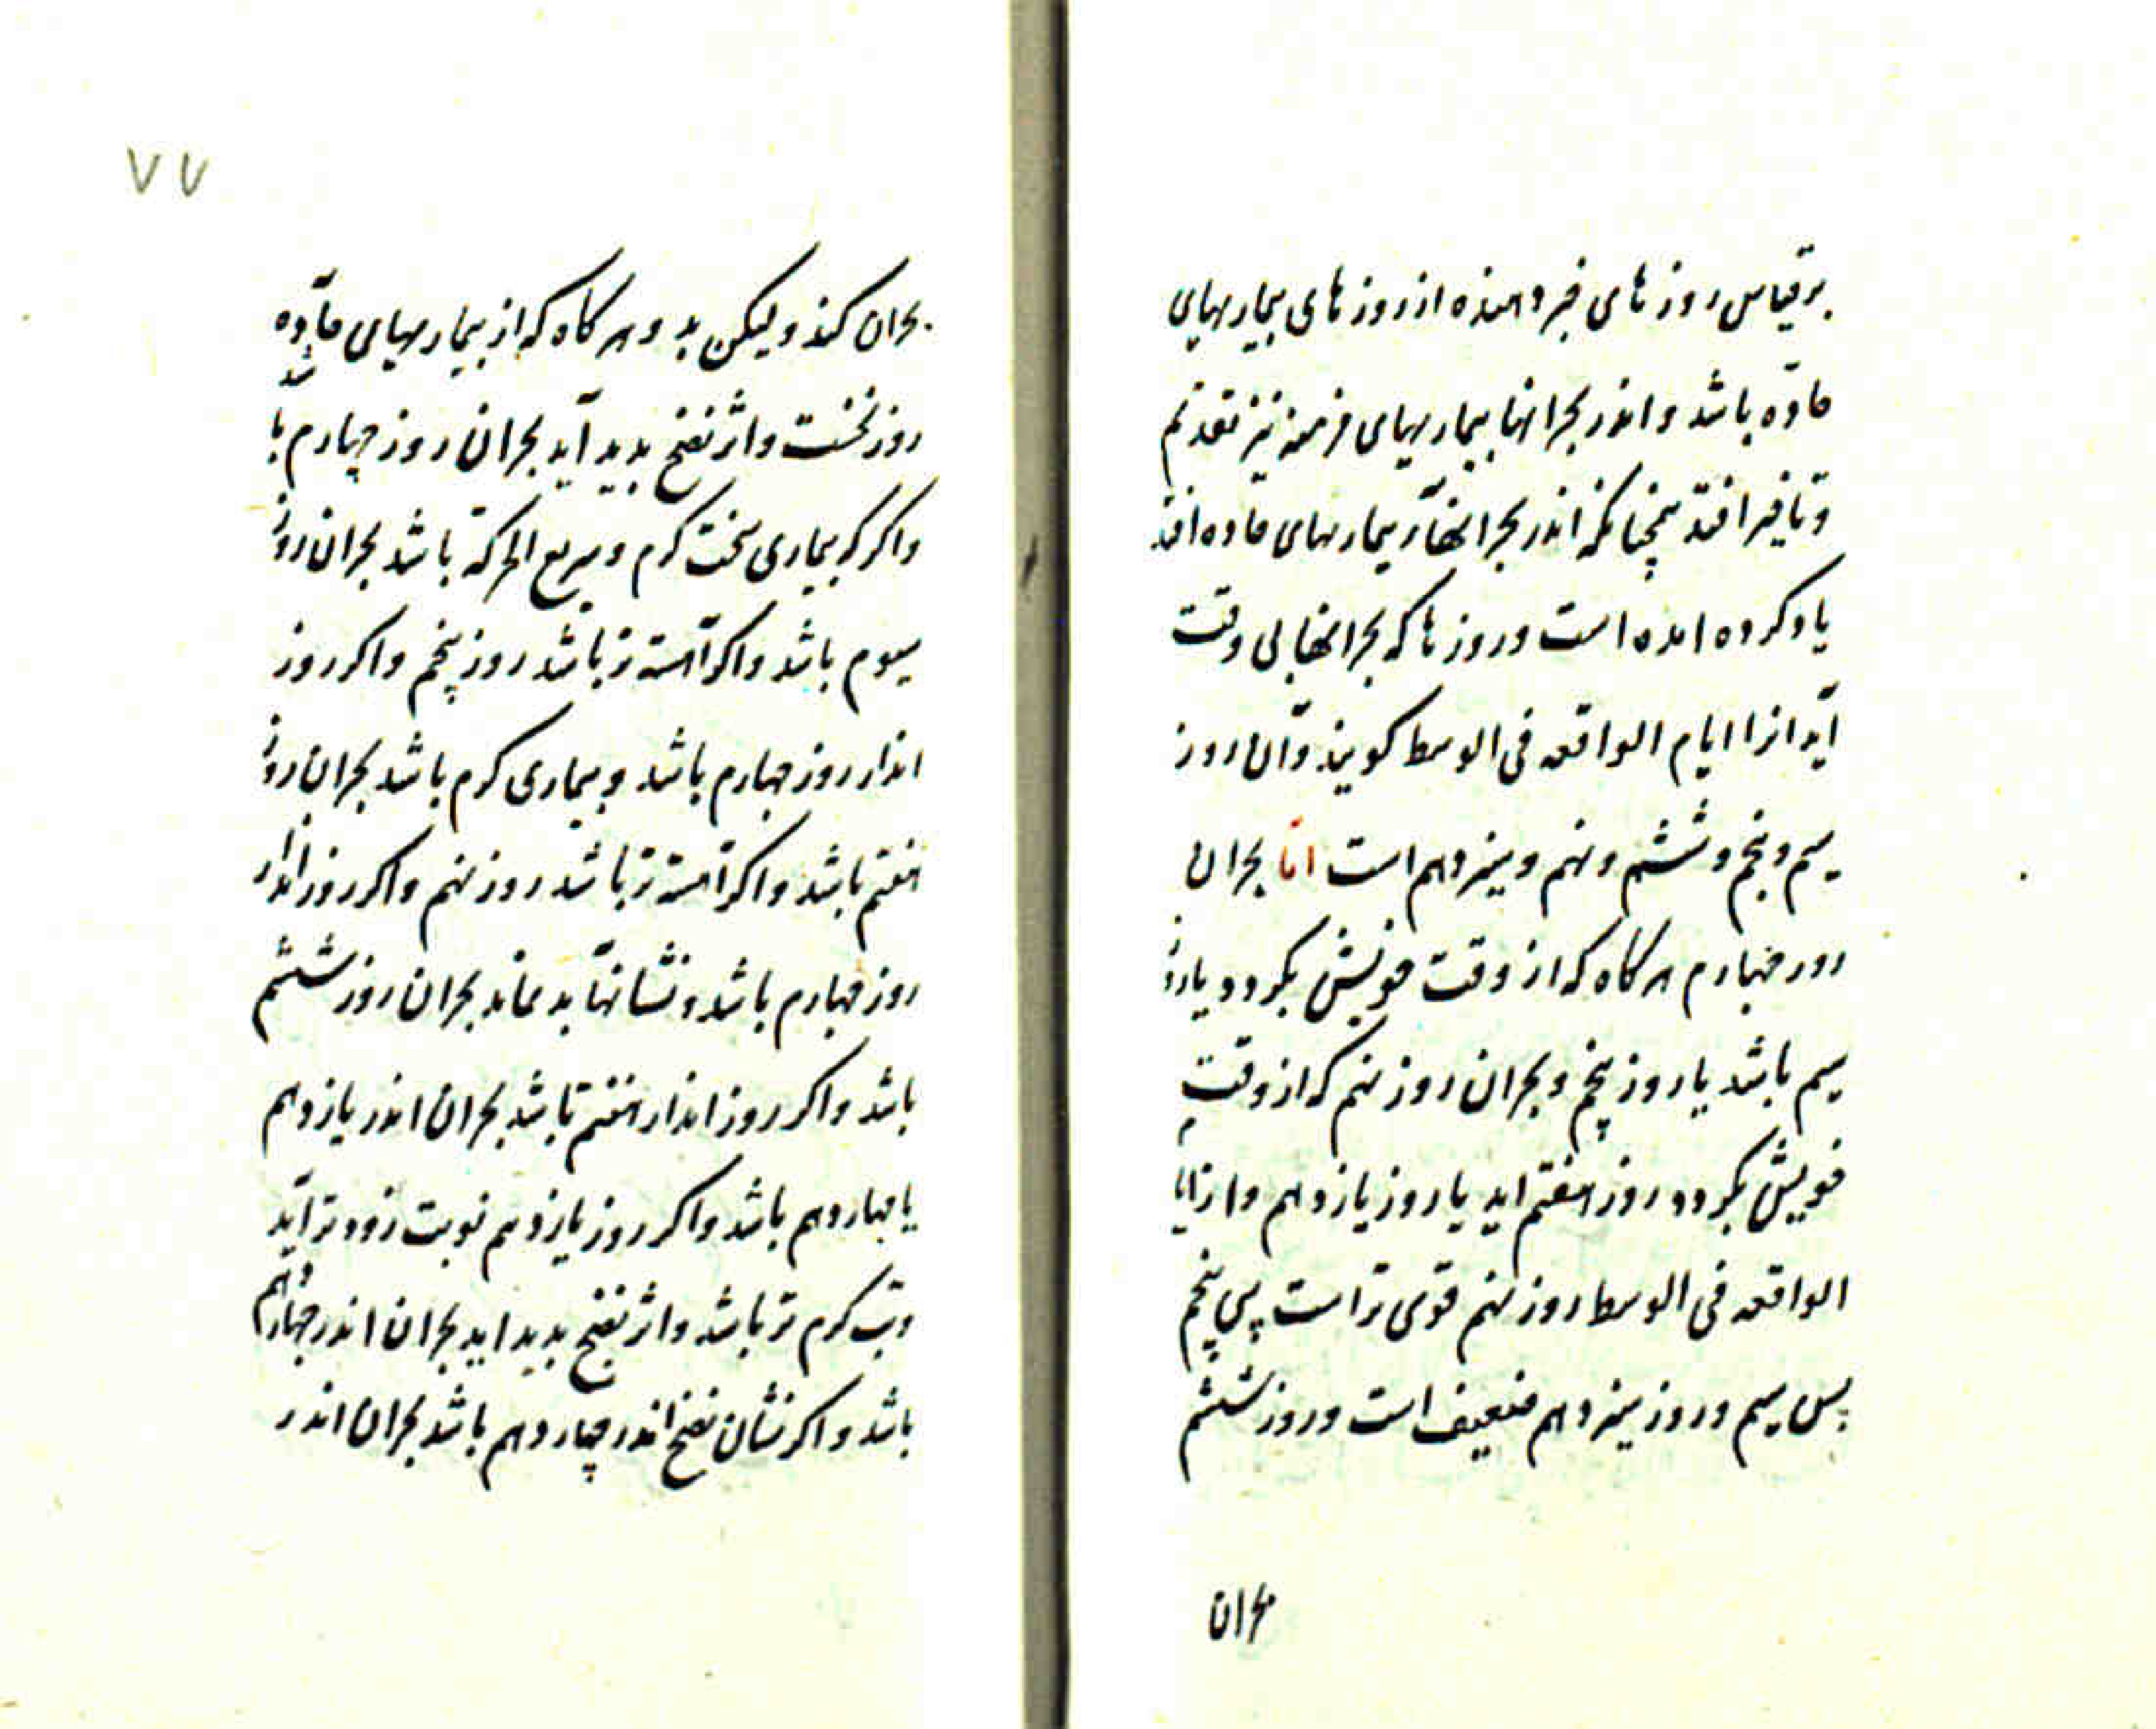 برقیاس روزهای خبر دهنده از روزهای بیماریهای
حاده باشد و اندر بحرانها بیماریهای مزمنه نیز تقدم
و تاخیر افتد همچنانکه اندر بحرانهآء بیماریهای حاده افتد
یاد کرده امده است و روزها که بحرانها بی وقت
آید انرا ایام الواقعه فی الوسط کویند و آن روز
سیم و پنجم و ششم و نهم و سیزدهم است اما بحران
روز چهارم هرکاه که از وقت خویش بکردد یا روز
سیم باشد یا روز پنجم و بحران روز نهم که از وقت
خویش بکردد روز هفتم اید یا روز یازدهم و از ایام
الواقعه فی الوسط روز نهم قوی تر است پس پنجم
پس سیم و روز سیزدهم ضعیف است و روز ششم
بحران
۷۷
بحران کند ولیکن بد و هرکاه که از بیماریهای حاده
روز نخست و اثر نضج بدید آید بحران روز چهارم باشد
و اکر که بیماری سخت کرم و سریع الحرکة باشد بحران روز
سیوم باشد و اکر آهسته تر باشد روز پنجم و اکر روز
انذار روز چهارم باشد و بیماری کرم باشد بحران روز
هفتم باشد و اکر آهسته تر باشد روز نهم و اکر روز انذار
روز چهارم باشد و نشانهآ بد نماید بحران روز ششم
باشد و اکر روز انذار هفتم باشد بحران اندر یازدهم
یا چهاردهم باشد و اکر روز یازدهم نوبت زودتر آید
و تب کرم تر باشد و اثر نضج بدید اید بحران اندر چهاردهم
باشد و اکر نشان نضج اندر چهاردهم باشد بحران اندر